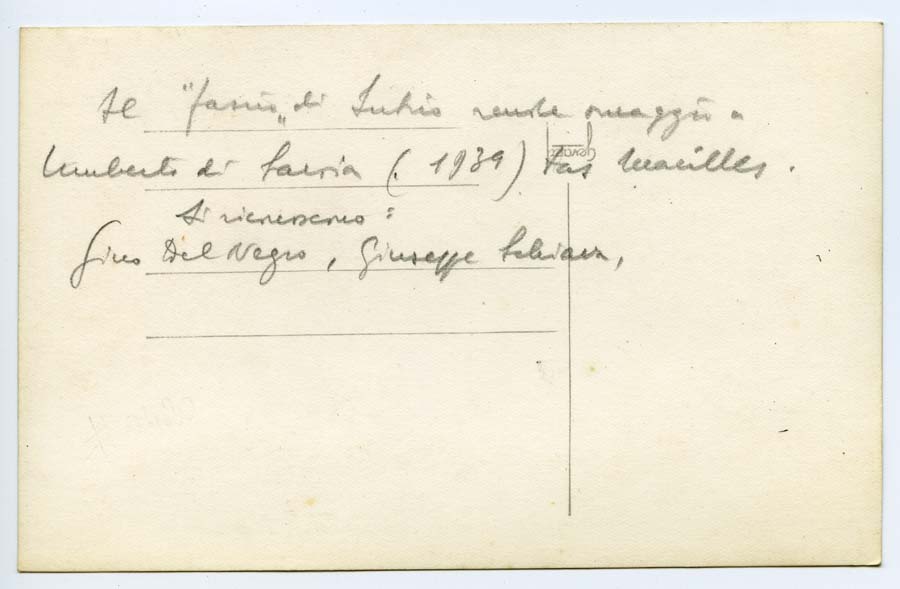 Il "fascio" di Sutrio rende omaggio a
Umberto di Savoia (. 1939)
Si riconoscono:
Gino Del Negro, Giuseppe Schiava,